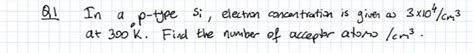 Q1 In a p-type Si, electron concentration is given as 3x10⁴/cm³
at 300 K. Find the number of acceptor atoms /cm³.